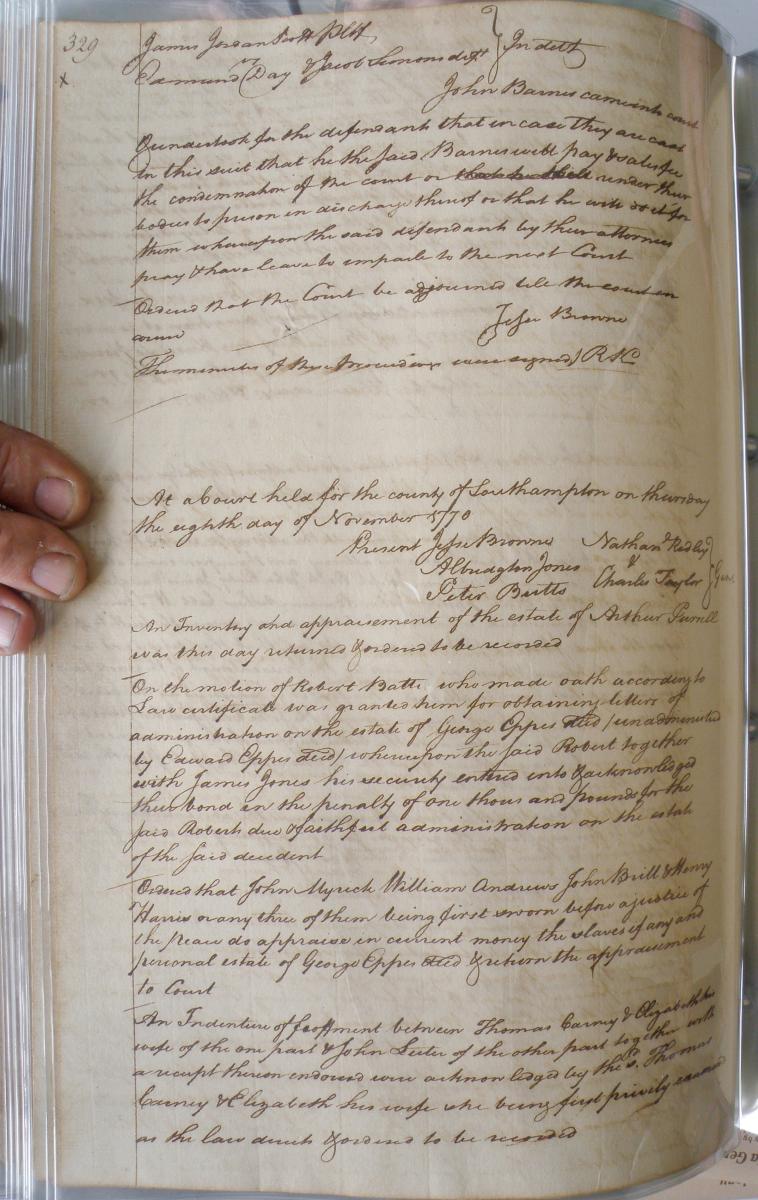 329
James Jordan Scott Plt
Edmund Day & Jacob Simmons deft } In debt
x
John Barnes came into court
& undertook for the defendants that in case they are cast
in this suit that he the said Barnes will pay & satisfie
the condemnation of the court or that he shall render their
bodies to prison in discharge thereof or that he will do it for
them whereupon the said defendants by their attornies
pray & have leave to imparle to the next Court
Ordered that the Court be adjourned till the court in
course
Jesse Browne
The minutes of these proceedings were signed } R K
At a Court held for the county of Southampton on thursday
the eighth day of November 1770
Present Jesse Browne Nathan Ridley
Albridgton Jones &
Peter Butts Charles Taylor } Gen
An Inventory and appraisement of the estate of Arthur Purnell
was this day returned & ordered to be recorded
On the motion of Robert Batte who made oath according to
Law certificate was granted him for obtaining letters of
administration on the estate of George Eppes decd (unadministred
by Edward Eppes decd) whereupon the said Robert together
with James Jones his security entred into & acknowledged
their bond in the penalty of one thousand pounds for the
said Roberts due & faithful administration on the estate
of the said decedent
Ordered that John Myrick William Andrews John Brill & Henry
Harris or any three of them being first sworn before a justice of
the peace do appraise in current money the slaves if any and
personal estate of George Eppes decd & return the appraisement
to Court
An Indenture of feoffment between Thomas Carney & Elizabeth his
wife of the one part & John Lester of the other part together with
a receipt thereon endorsed were acknowledged by the sd. Thomas
Carney & Elizabeth his wife she being first privily examined
as the law directs & ordered to be recorded